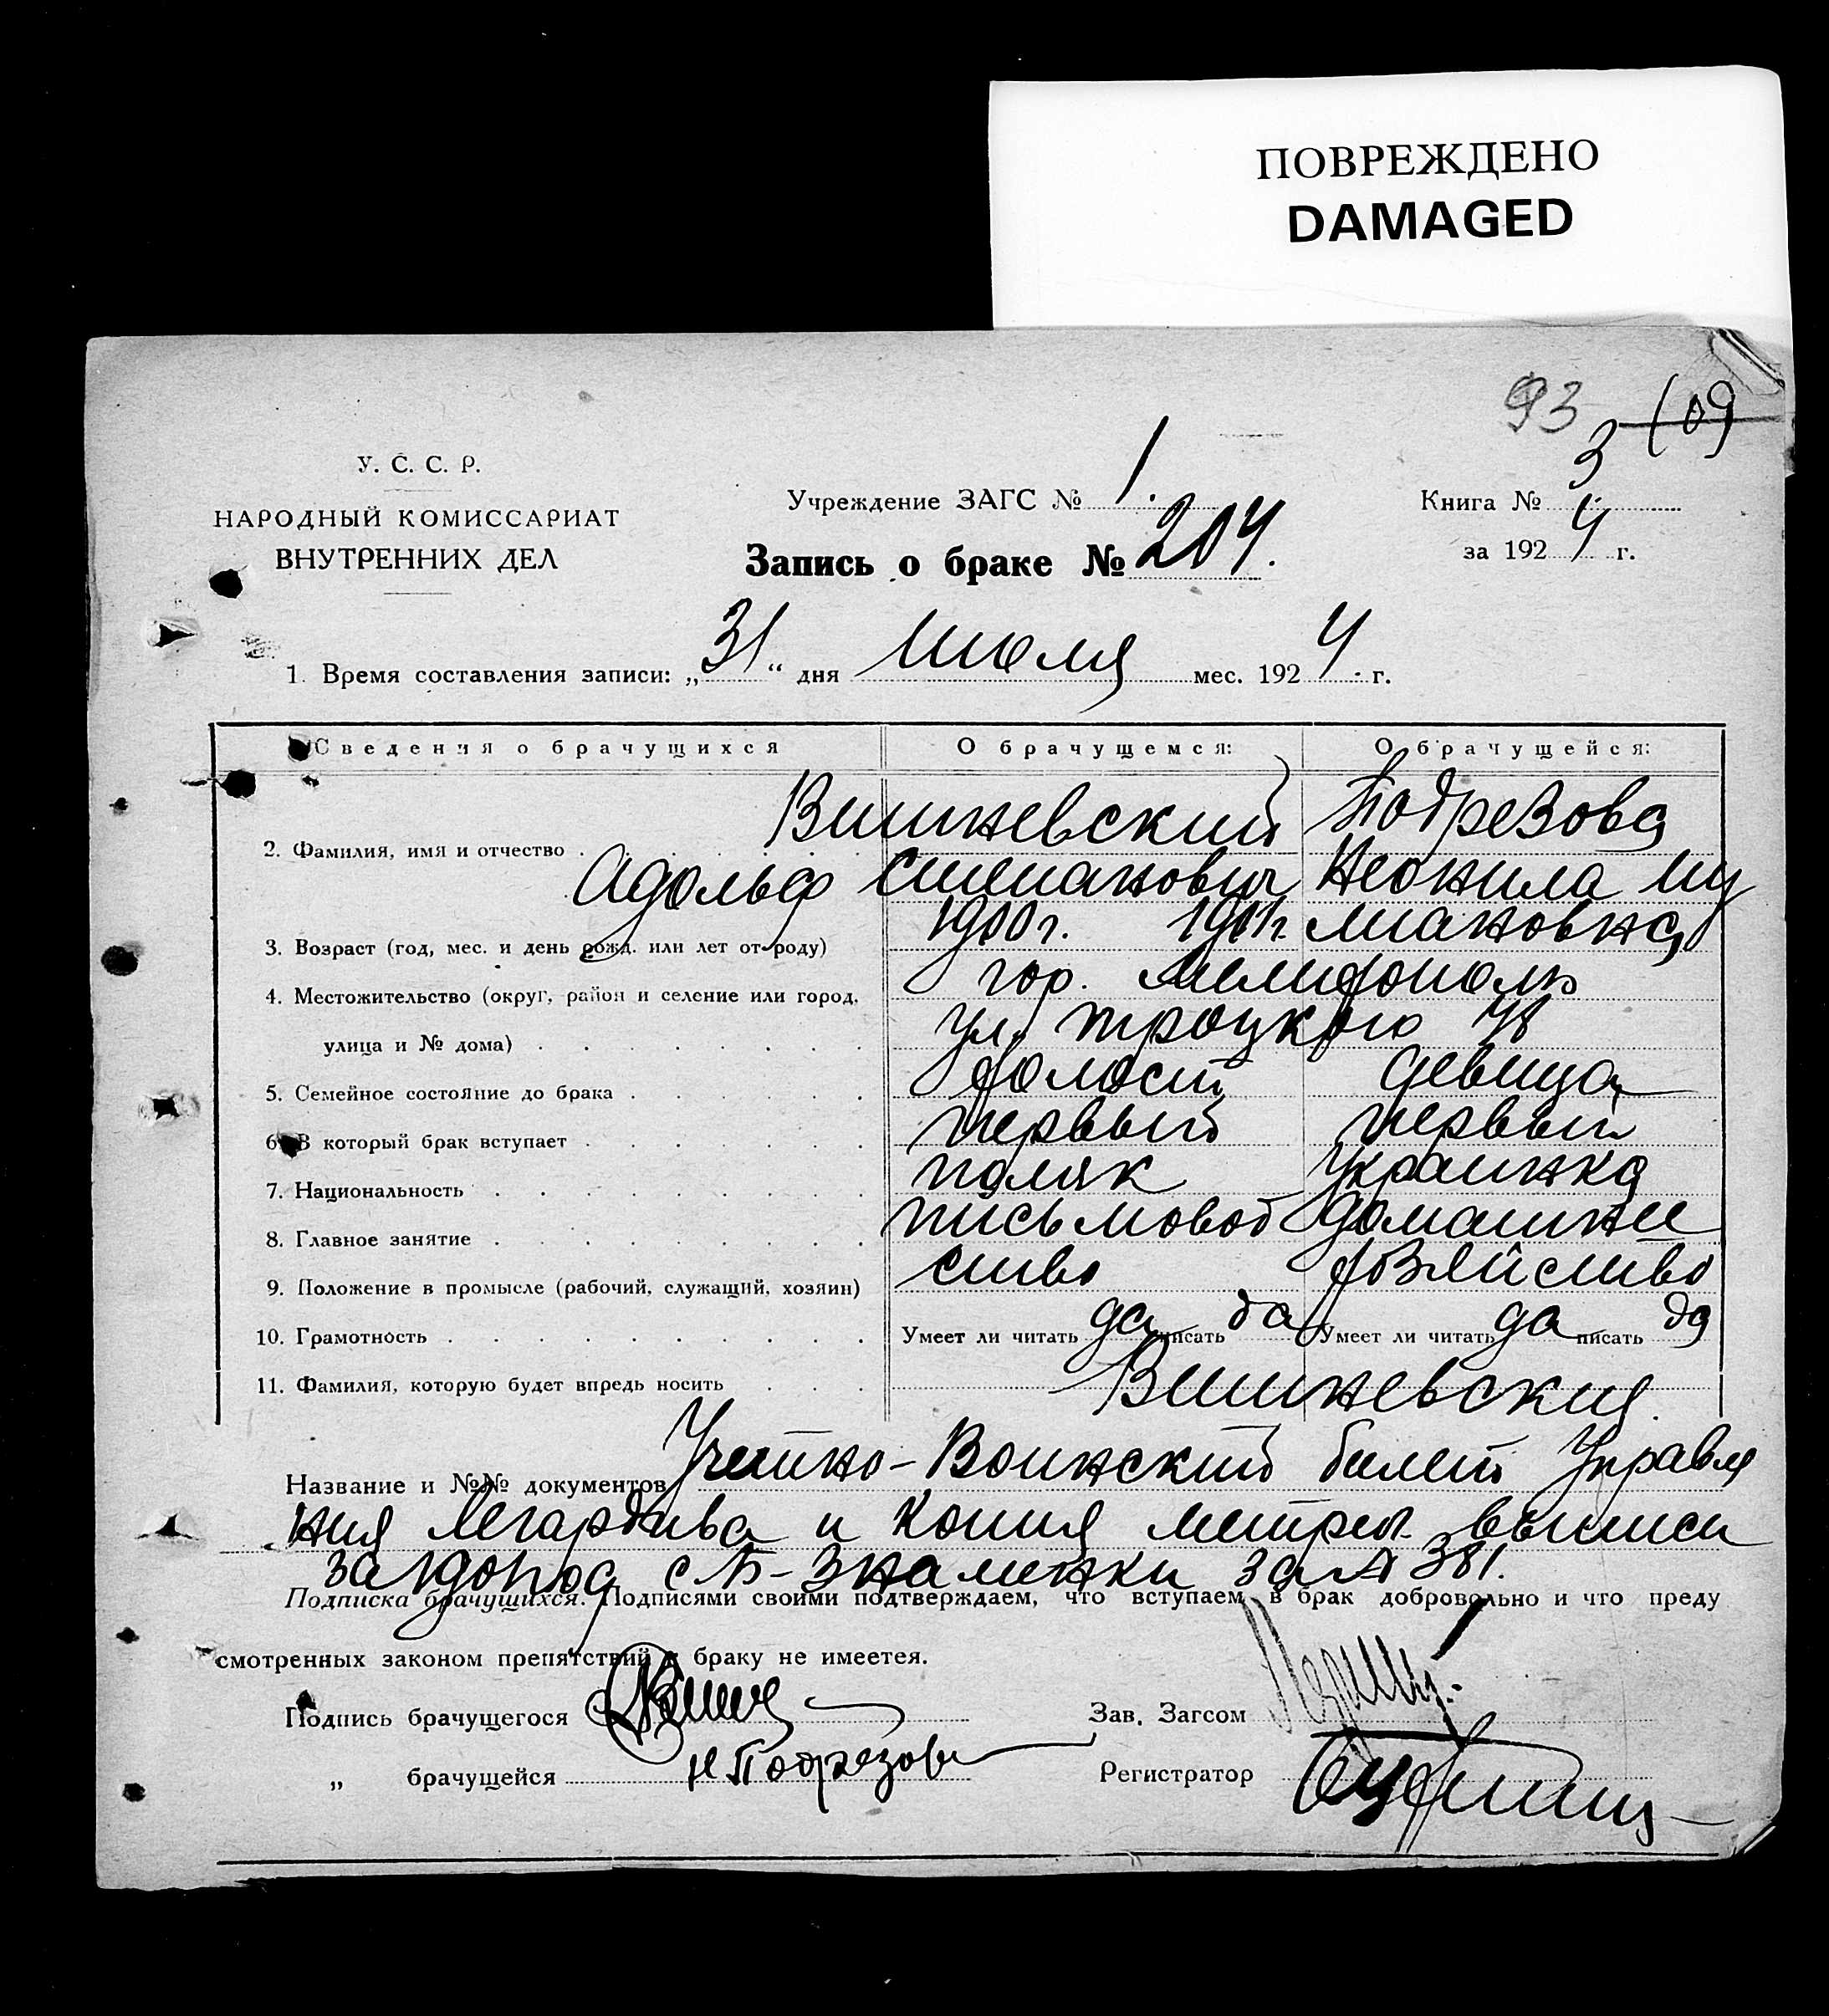 ПОВРЕЖДЕНО
DAMAGED
93 109
У. С. С. Р.
НАРОДНЫЙ КОМИССАРИАТ
ВНУТРЕННИХ ДЕЛ
Учреждение ЗАГС № 1.
Книга № 3
Запись о браке № 204.
за 1924 г.
1. Время составления записи: „31“ дня Июля мес. 1924 г.
Сведения о брачущихся О брачущемся: О брачущейся:
Вишневский Подрезова
2. Фамилия, имя и отчество
Адольф Симанович Неонила Ми
1900 г. 1901 г. лиановна
3. Возраст (год, мес. и день рожд. или лет от роду)
гор. Мелитополь
4. Местожительство (округ, район и селение или город,
ул. Троцкого 48
улица и № дома)
5. Семейное состояние до брака холост девица
6. В который брак вступает первый первый
7. Национальность поляк Украинка
8. Главное занятие письмовод домашнее
ство хозяйство
9. Положение в промысле (рабочий, служащий, хозяин)
10. Грамотность Умеет ли читать да писать да Умеет ли читать да писать да
11. Фамилия, которую будет впредь носить Вишневския
Название и №№ документов Учетно-Воинский билет Управле
ния и Копия метрич. выписи
с Б-Знаменки за № 381.
Подписка брачущихся. Подписями своими подтверждаем, что вступаем в брак добровольно и что преду
смотренных законом препятствий к браку не имеется.
Подпись брачущегося Зав. Загсом
„ брачущейся Н Подрезова Регистратор